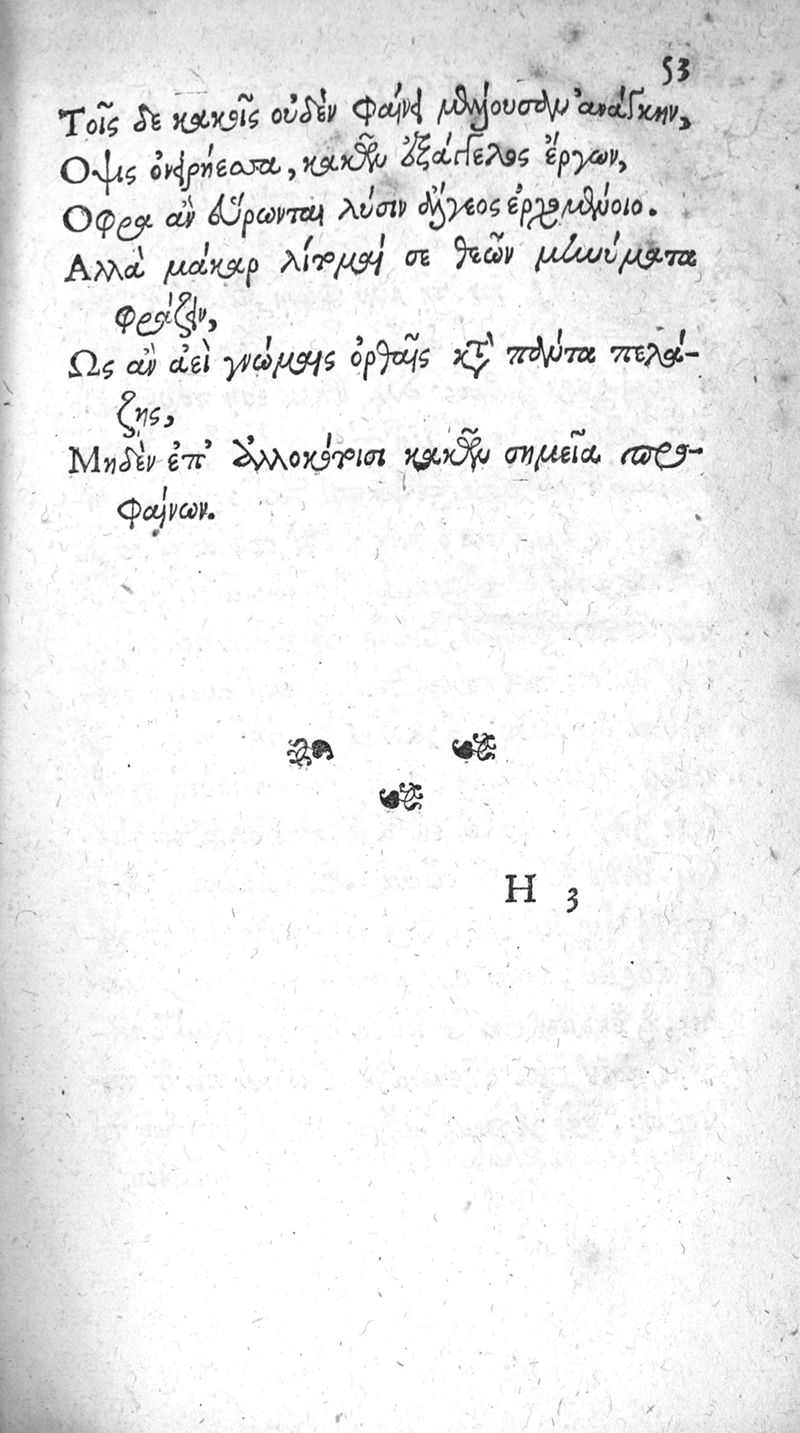 53
Τοῖς δε κακοῖς οὐδὲν φαίνει μέλλουσαν ἀνάγκην,
Οψις ὀνειρήεσσα, κακῶν ἐξάγγελος ἔργων,
Οφρα ἂν εὕρωνται λύσιν ἄλγεος ἐρχομένοιο.
Αλλὰ μάκαρ λίτομαί σε θεῶν μηνύματα
φράζειν,
Ως ἂν ἀεὶ γνώμαις ὀρθαῖς κτ' πάντα πελά-
ζῃς,
Μηδὲν ἐπ' ἀλλοκότοισι κακῶν σημεῖα προ-
φαίνων.
H 3